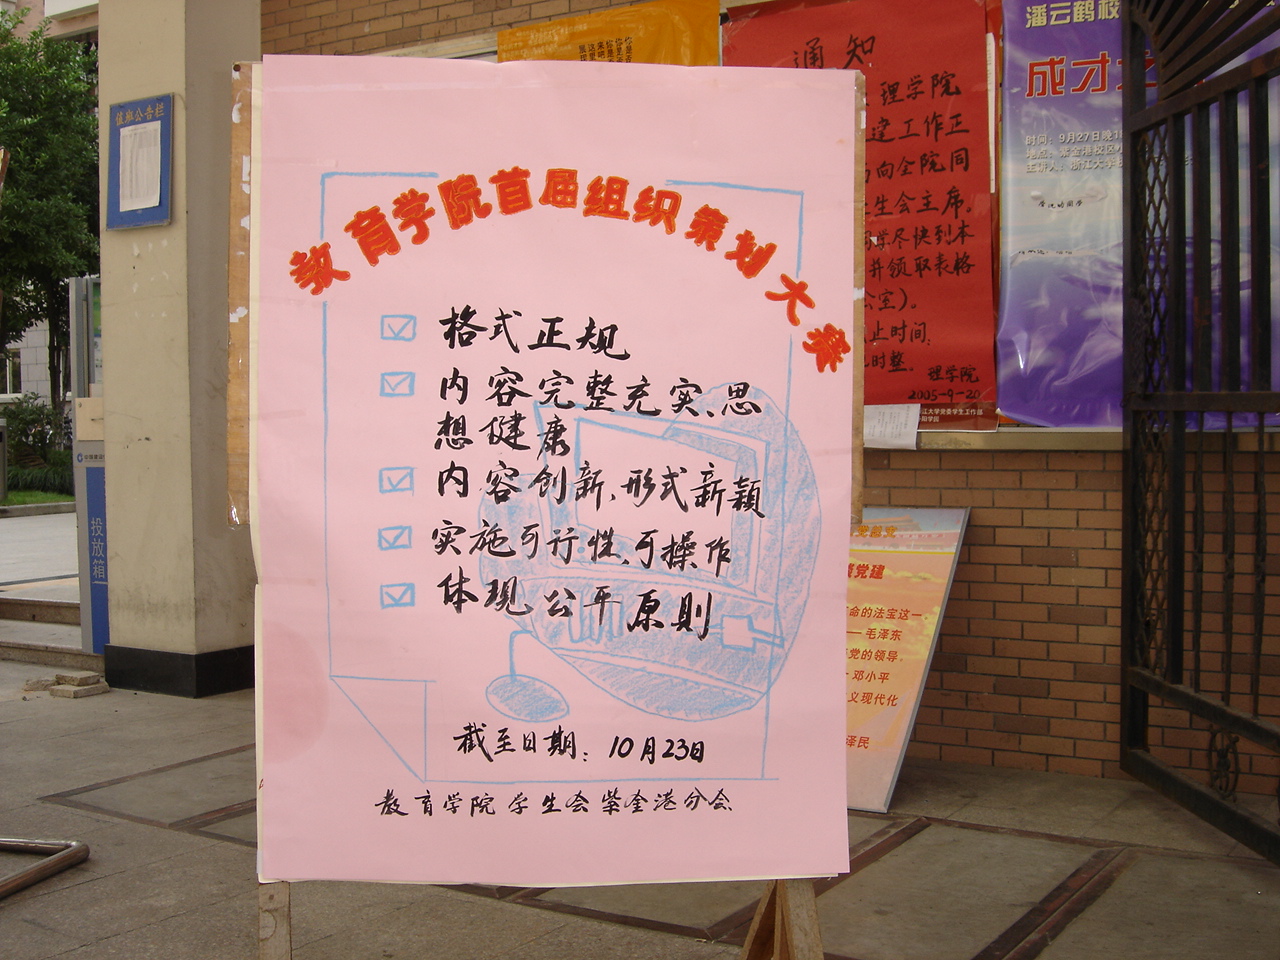 教育学院首届组织策划大赛
格式正规
内容完整充实、思
想健康
内容创新、形式新颖
实施可行性、可操作
体现公平原则
截至日期：10月23日
教育学院学生会紫金港分会
值班公告栏
投放箱
通知
理学院
建工作正
向全院同
生会主席。
学尽快到本
并领取表格
室）。
止时间：
时整。
理学院
2005-9-20
潘云鹤校
成才之
时间：9月27日晚
地点：紫金港校区
主讲人：浙江大学
江大学党委学生工作部
党建
革命的法宝这一
—— 毛泽东
党的领导，
邓小平
义现代化
泽民